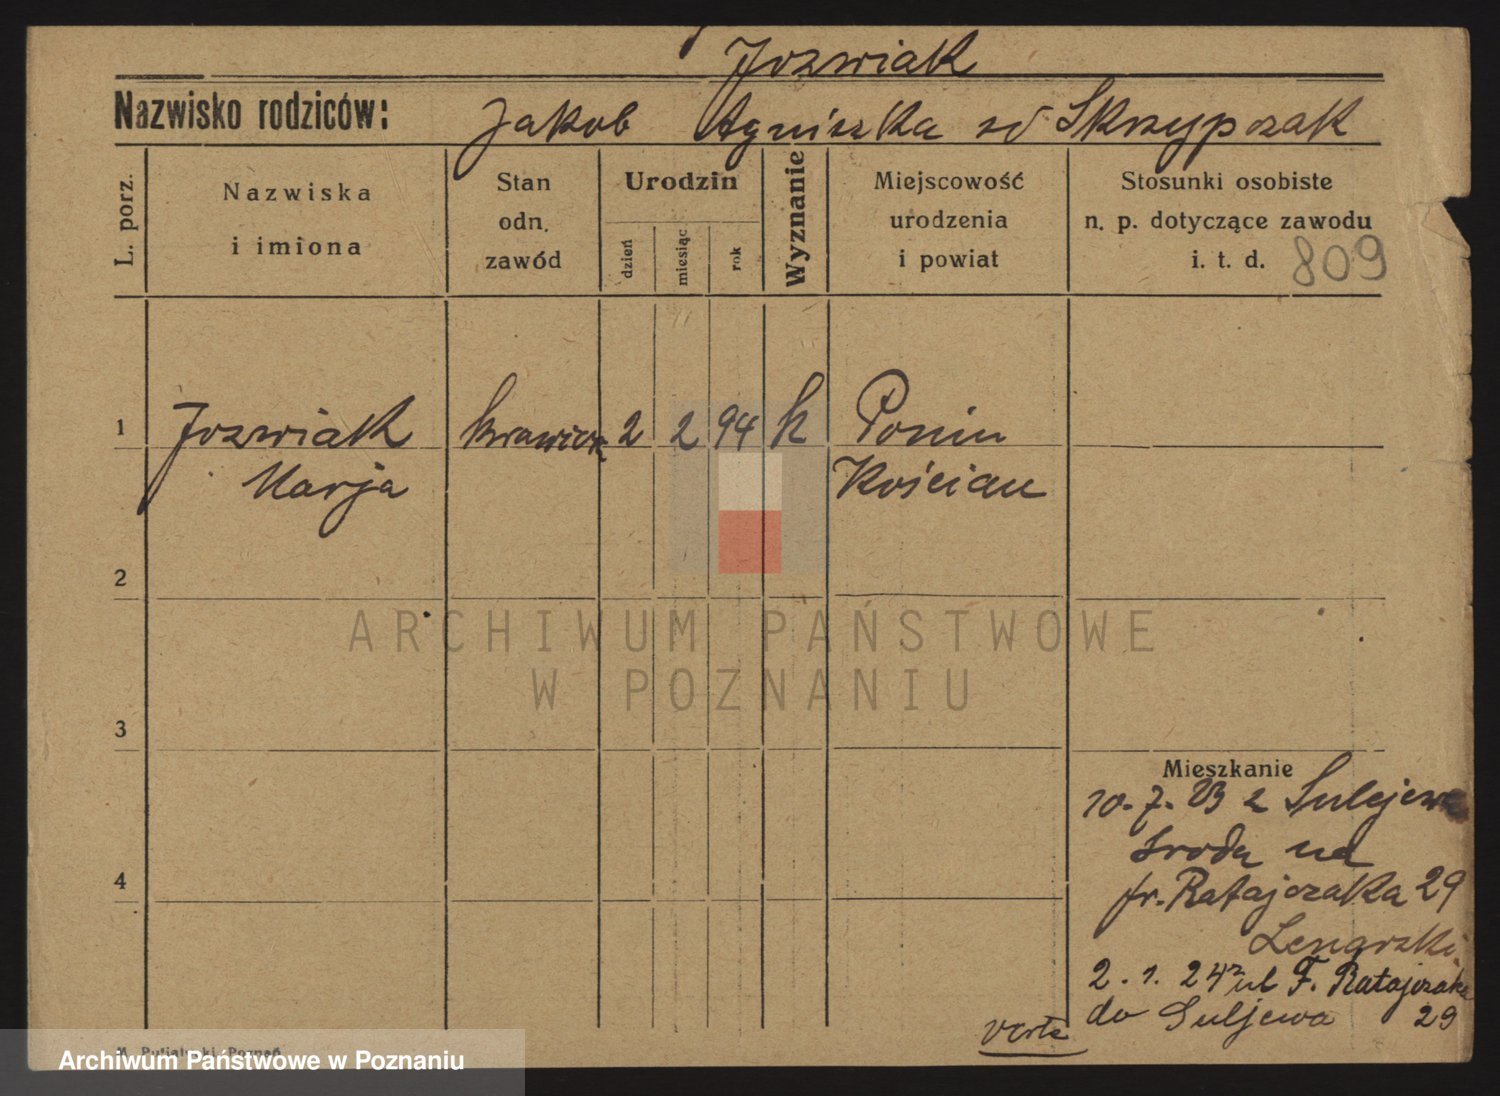 Jozwiak
Nazwisko rodziców: Jakob Agnieszka zd Skrzypczak
L. porz.
Nazwiska
i imiona
Stan
odn.
zawód
Urodzin
dzień
miesiąc
rok
Wyznanie
Miejscowość
urodzenia
i powiat
Stosunki osobiste
n. p. dotyczące zawodu
i. t. d. 809
1 Jozwiak 2 2 94 k Ponin
Marja Kościan
2
ARCHIWUM PAŃSTWOWE
W POZNANIU
3
Mieszkanie
10. 7. 23 z Sulejewa
Sroda na
fr. Ratajczaka 29
4
2. 1. 24 z ul F. Ratajczaka
do Suljewa 29
verte
Archiwum Państwowe w Poznaniu